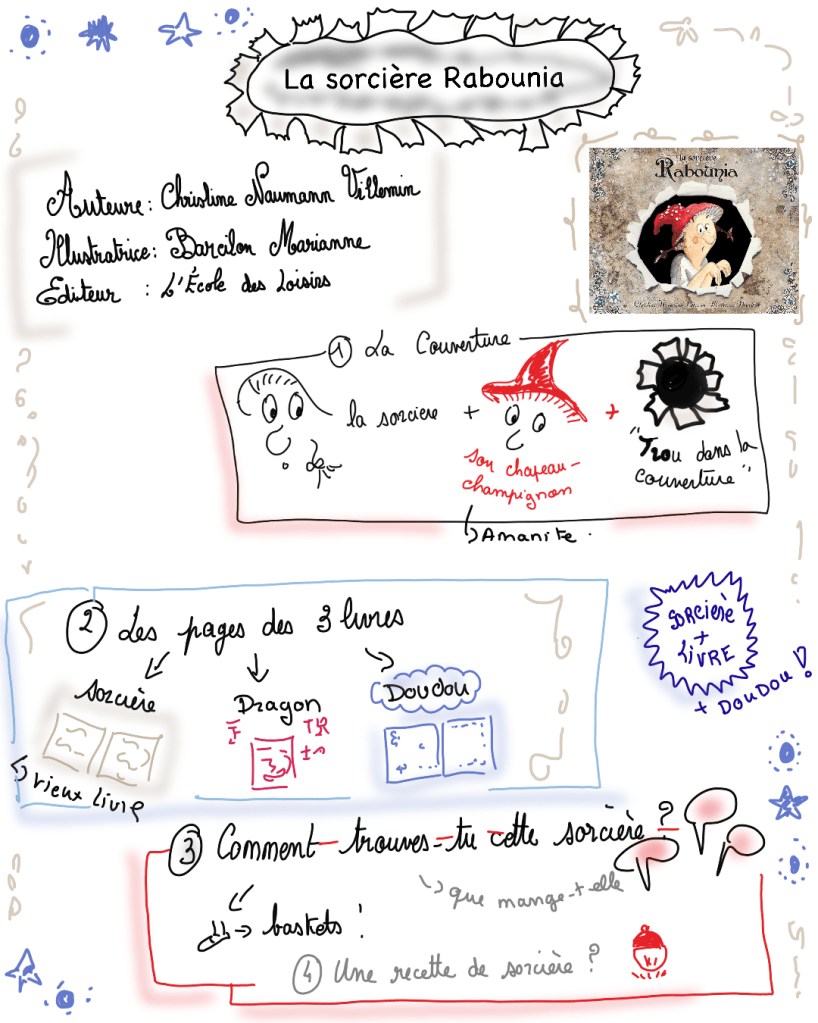 La sorcière Rabounia
Auteure : Christine Naumann Villemin
Illustratrice : Barcilon Marianne
Editeur : L'École des Loisirs
la sorcière
Rabounia
1 La Couverture
la sorcière + + "Trou dans la
couverture"
son chapeau-
champignon
Amanite.
2 Les pages des 3 livres
sorcière
Dragon
Doudou
vieux livre
SORCIERE
+
LIVRE
+ DOUDOU !
3 Comment trouves-tu cette sorcière ?
que mange-t-elle
baskets !
4 Une recette de sorcière ?